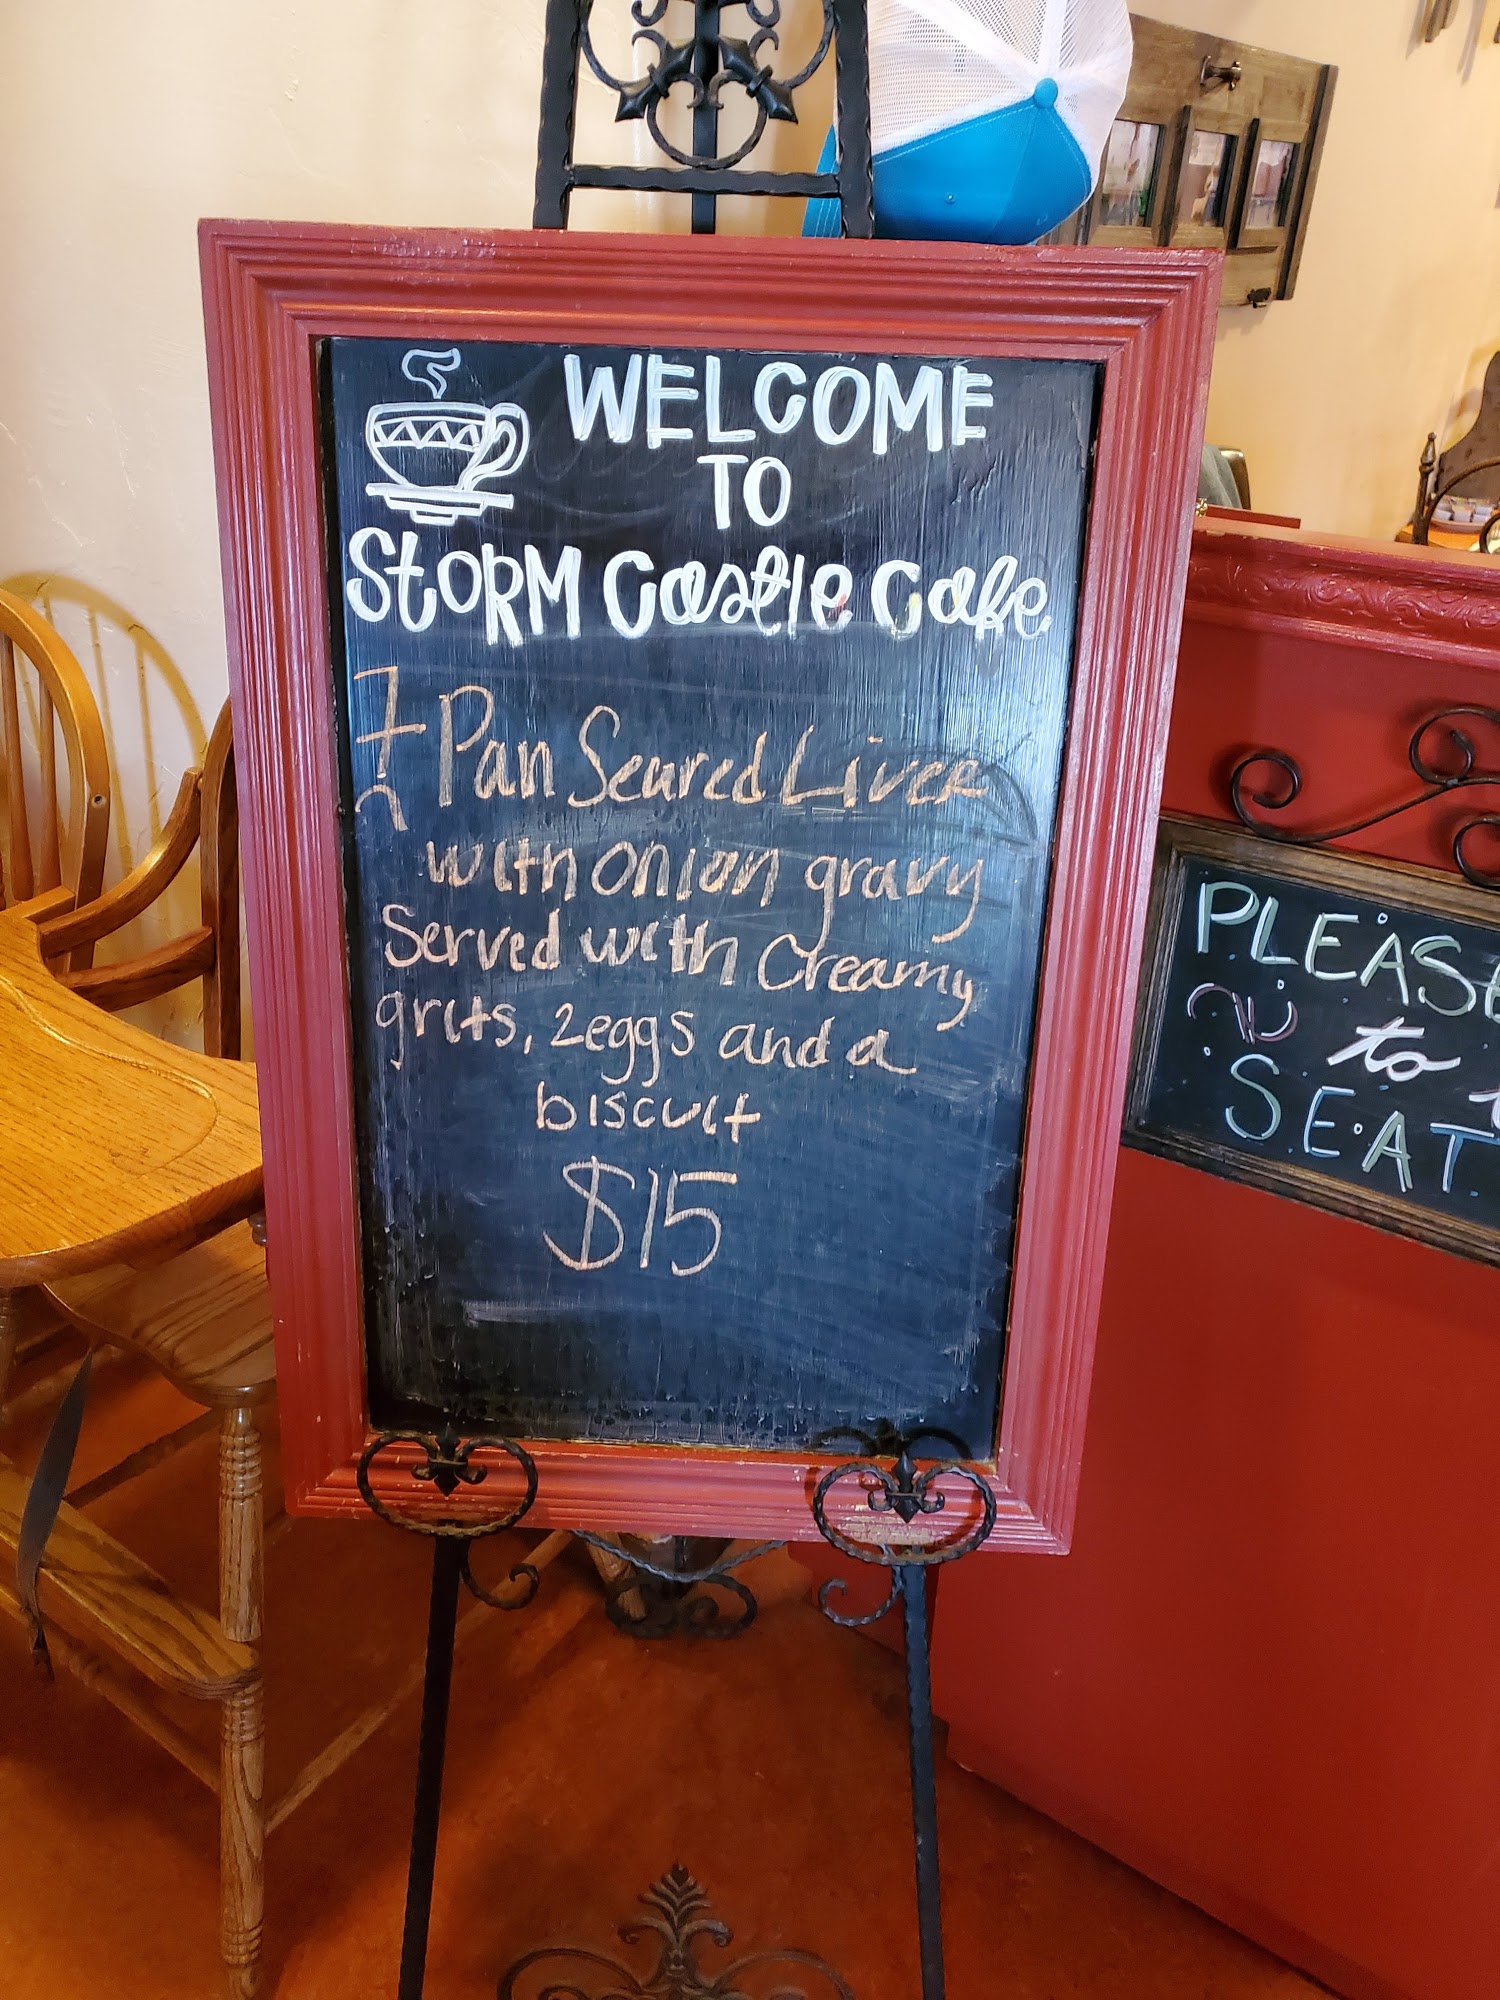 WELCOME
TO
STORM Castle Cafe
7 Pan Seared Liver
with onion gravy
Served with Creamy
grits, 2 eggs and a
biscuit
$15
PLEASE
to
SEAT